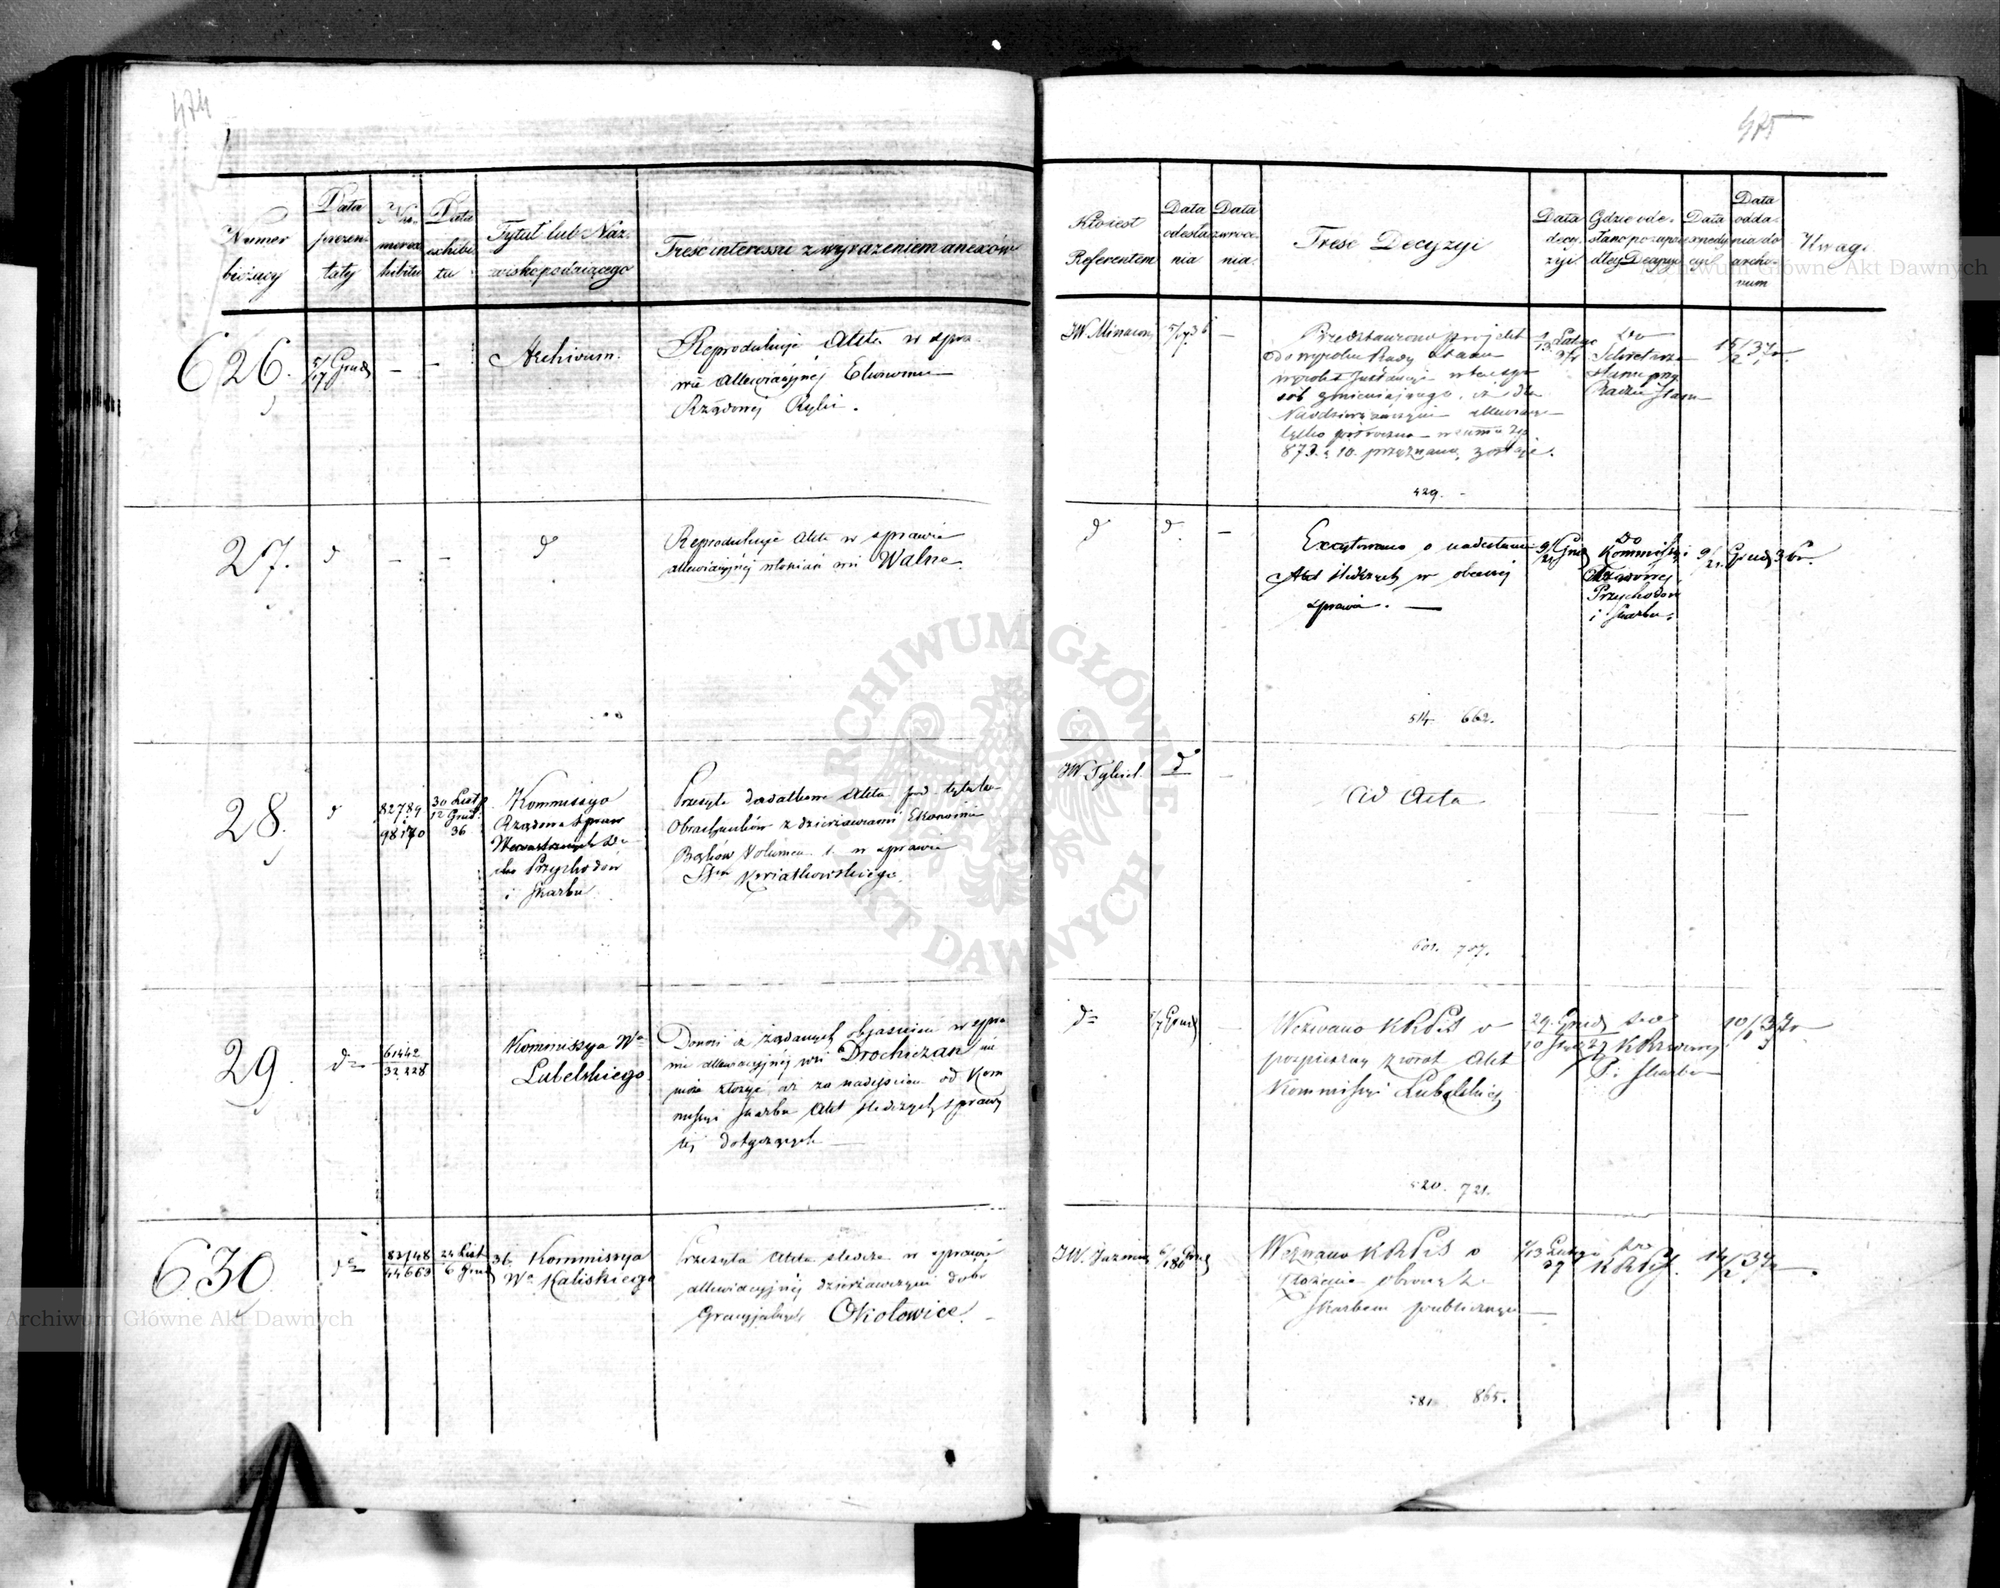 474
Numer
bieżący
Data
prezen-
taty
Nu-
mer ex-
hibitu
Data
exhibi-
tu
Tytuł lub Naz-
wisko podającego
Treść interessu z wyrażeniem anexów
626.
5/17 Grud
—
—
Archivum.
Reprodukuje Akta w spra-
wie allewiacyjnej Ekonomii
Rządowej Ryki.
27.
d
—
—
d
Reprodukuje Akta w sprawie
allewiacyjnej włościan wsi Walne.
28.
d
82789
98170
30 List
12 Grud.
36
Kommissya
Rządowa Spraw
Wewnętrznych
Przychodów
i Skarbu
Przesyła dodatkowe Akta pod tytułem
Obrachunków z dzierżawcami Ekonomii
Volumen 1. w sprawie
Kwiatkowskiego.
29.
do
61442
32.228
Kommissya Wa
Lubelskiego
Donosi iż żądanych objaśnień w spra-
wie allewiacyjnej wsi Drochiczan nie
może złożyć aż za nadejściem od Kom
missyi Skarbu Akt śledczych sprawy
tej dotyczących —
630.
do
82/48
44668
24 List
6 Grud
36
Kommissya
Wa Kaliskiego
Przesyła Akta śledcze w sprawie
allewiacyjnej dzierżawczyni dóbr
Okołowice.
475
Kto jest
Referentem
Data
odesła-
nia
Data
zwróce-
nia.
Treść Decyzyi
Data
decy-
zyi.
Gdzie ode-
słano po zapa-
dłej Decyzyi
Data
expedy-
cyi.
Data
odda-
nia do
archi-
vum
Uwagi
JW Minasow,
5/17 36
—
Przedstawiono projekt
do wyroku Rady Stanu
wyrok Instancyi
zmieniającego, iż dla
tylko w summie Zp
873. 10. przyznaną zostaje.
429.
Do
Sekretarza
Stanu przy
Radzie Stanu
15/2 37 r.
d
d.
—
Excytowano o nadesłanie
Akt śledczych w obecnej
sprawie. —
514. 662.
9/21 Grud
Do
Kommissyi
Rządowej
Przychodów
i Skarbu.
9/21. Grud 36 r.
JW Tykiel.
d
—
Ad Acta
601. 707.
do
5/17 Grud
—
Wezwano KRPiS o
pospieszny zwrot Akt
Kommissyi Lubelskiej
520. 721.
29. Grud
10 Stycz
Do
K Rządowej
P. i Skarbu
10/1 37 r
JW.
6/18 Grud
Wezwano KRPiS o
złożenie obrony ze
Skarbem publicznym —
581. 865.
1/13 Lutego
37
Do
KRPiS.
14/2 37 r.
Archiwum Główne Akt Dawnych
ARCHIWUM GŁÓWNE
AKT DAWNYCH
Archiwum Główne Akt Dawnych